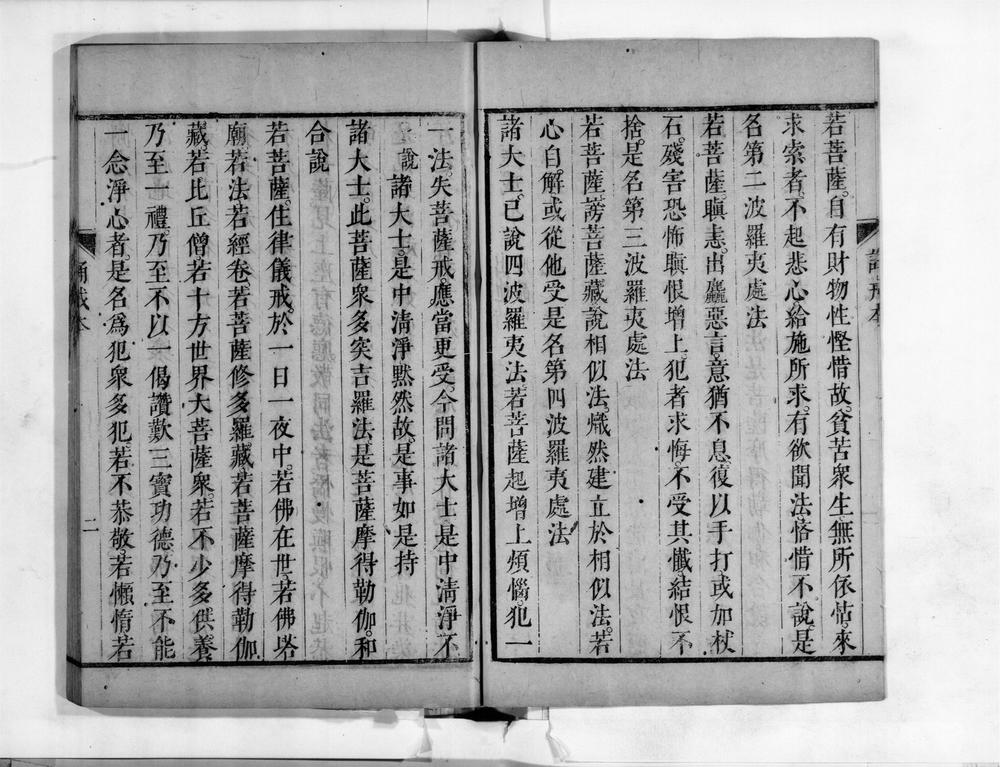 若菩薩。自有財物性慳惜故。貧苦衆生無所依怙。來
求索者。不起悲心。給施所求。有欲聞法悋惜不說。是
名第二波羅夷處法
若菩薩瞋恚。出麤惡言。意猶不息。復以手打或加杖
石。殘害恐怖瞋恨增上。犯者求悔。不受其懺結恨不
捨。是名第三波羅夷處法
若菩薩謗菩薩藏說相似法。熾然建立於相似法。若
心自解。或從他受是名第四波羅夷處法
諸大士。已說四波羅夷法若菩薩起增上煩惱。犯一
一法。失菩薩戒。應當更受。今問諸大士是中淸淨不
說 諸大士。是中淸淨默然故。是事如是持
諸大士。此菩薩衆多突吉羅法是菩薩摩得勒伽。和
合說
若菩薩。住律儀戒。於一日一夜中。若佛在世。若佛塔
廟若法若經卷若菩薩修多羅藏若菩薩摩得勒伽
藏若比丘僧若十方世界大菩薩衆。若不少多供養
乃至一禮。乃至不以一偈讚歎三寶功德乃至不能
一念淨心者。是名爲犯衆多犯。若不恭敬。若懶惰若
誦戒本
二